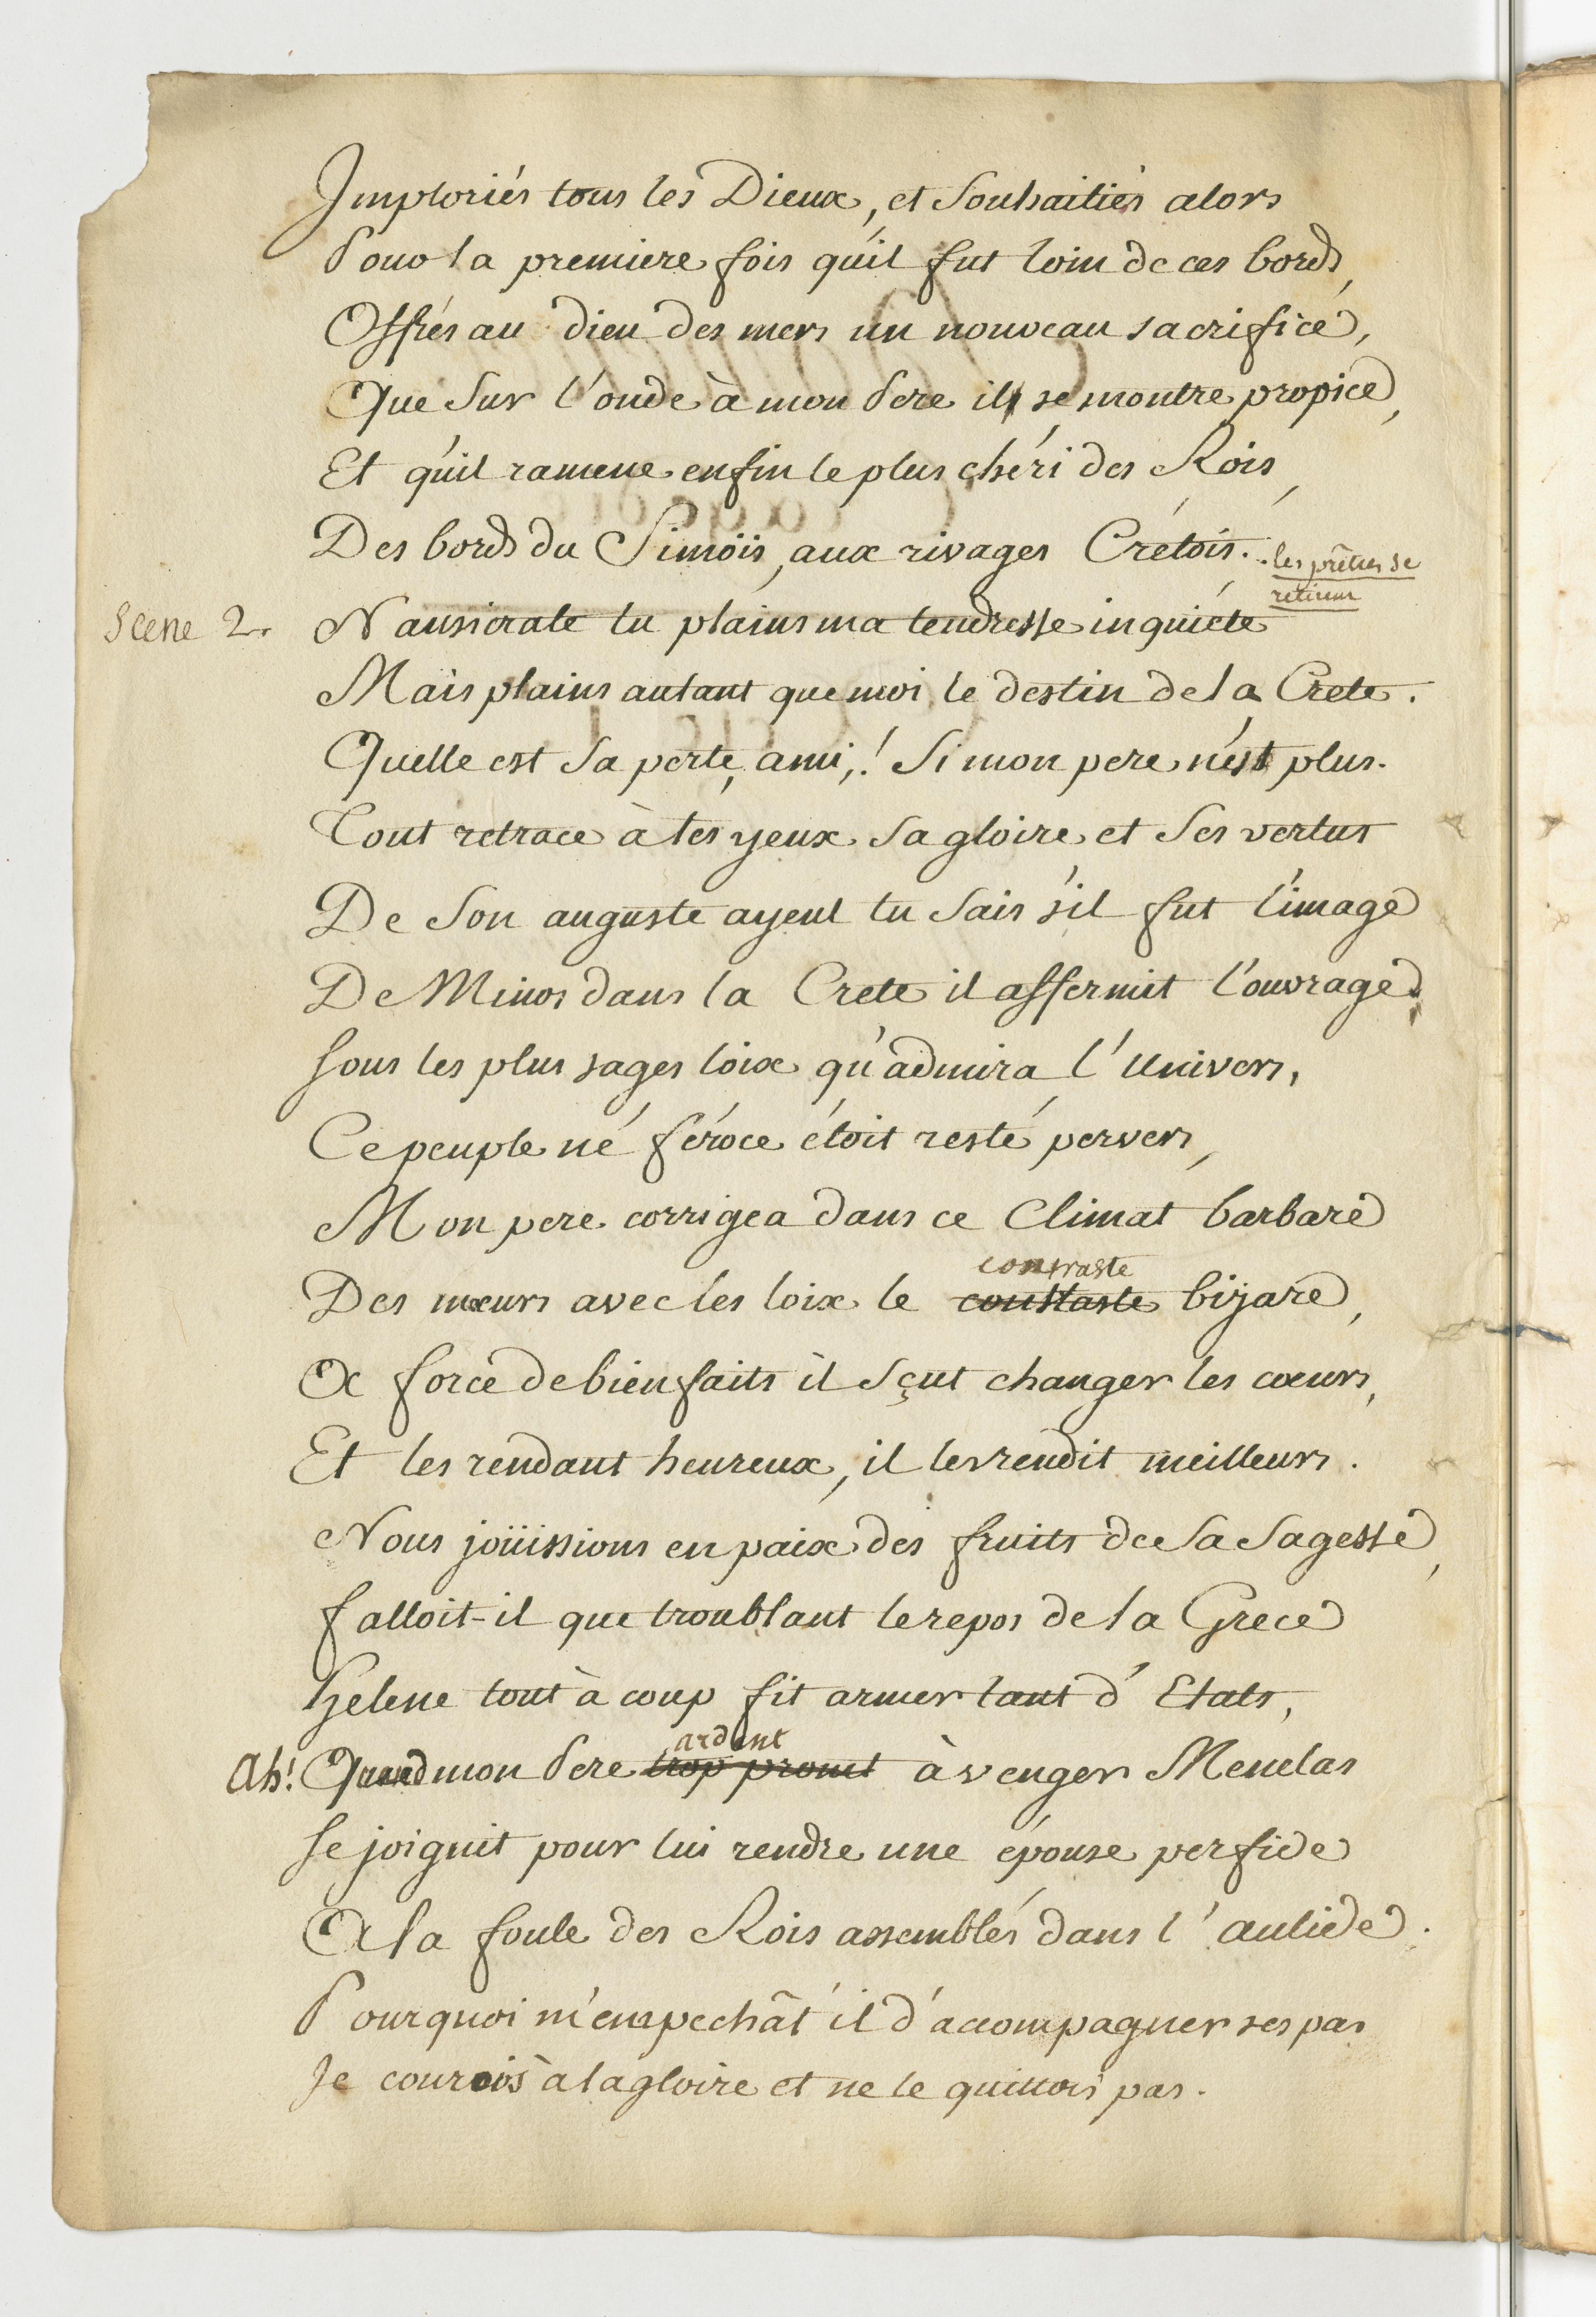 Imploriés tous les Dieux, et Souhaitiés alors
Pour la premiere fois qu'il fut loin de ces bords,
Offrés au dieu des mers un nouveau sacrifice,
Que Sur l'onde à mon Pere il se montre propice,
Et qu'il ramene enfin le plus chéri des Rois,
Des bords du Simöis, aux rivages Crétois. les prêtres se
retirent
Scene 2. Nausicrate tu plains ma tendresse inquiéte
Mais plains autant que moi, le destin de la Crete.
Quelle est Sa perte, ami,! Si mon pere n'est plus.
Tout retrace à tes yeux Sa gloire et Ses vertus
De Son auguste ayeul tu Sais s'il fut l'image
De Minos dans la Crete il affermit l'ouvrage.
Sous les plus sages loix qu'admira l'Univers,
Ce peuple né féroce étoit resté pervers,
Mon pere corrigea dans ce Climat barbare
contraste
Des mœurs avec les loix le constaste bizare,
A force de bienfaits il Sçut changer les cœurs,
Et les rendant heureux, il les rendit meilleurs.
Nous joüissions en paix des fruits de Sa Sagesse,
falloit-il que troublant le repos de la Grece
helene tout à coup fit armer tant d'Etats,
ardent
Ah! Quand mon Pere trop promt à venger Menelas
Se joignit pour lui rendre une épouse perfide
A la foule des Rois assemblés dans l'aulide.
Pourquoi m'empechât'il d'accompagner ses pas
Je courois à la gloire et ne le quittois pas.